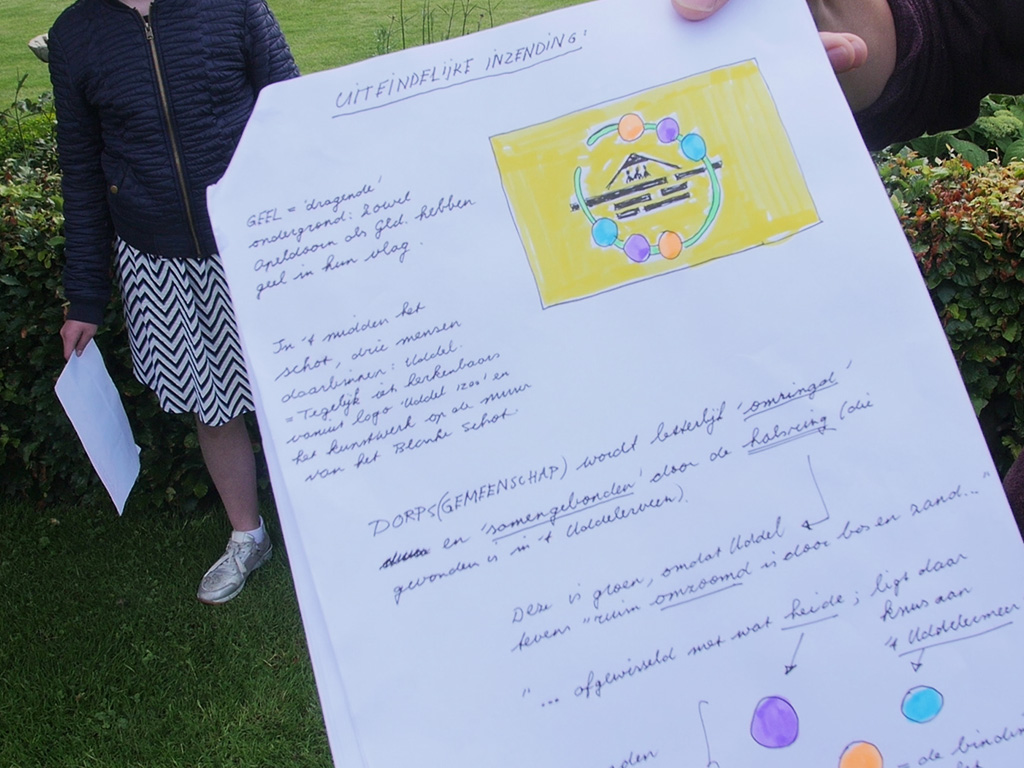 'UITEINDELIJKE INZENDING'
GEEL = 'dragende'
ondergrond: zowel
Apeldoorn als Gld. hebben
geel in hun vlag.
In 't midden het
schot, drie mensen
daarbinnen: Uddel.
= Tegelijk iets herkenbaars
vanuit logo 'Uddel 1200' en
het kunstwerk op de muur
van het Blanke Schot.
DORPS(GEMEENSCHAP) wordt letterlijk 'omringd'
en 'samengebonden' door de halsring (die
gevonden is in 't Uddelerveen).
Deze is groen, omdat Uddel
tevens "ruim omzoomd is door bos en zand..."
"... afgewisseld met wat heide; ligt daar
knus aan
't Uddelermeer
= de